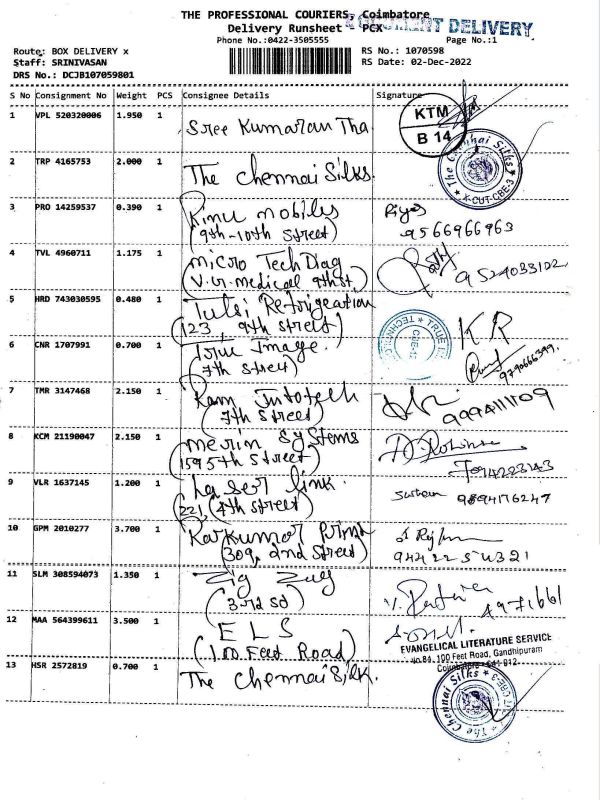 THE PROFESSIONAL COURIERS, Coimbatore
Delivery Runsheet - PCX
DOCUMENT DELIVERY
Phone No.:0422-3505555
Page No.:1
Route: BOX DELIVERY x
RS No.: 1070598
Staff: SRINIVASAN
RS Date: 02-Dec-2022
DRS No.: DCJB107059801
S No Consignment No Weight PCS Consignee Details Signature
1 VPL 520320006 1.950 1 Sree Kumaran Tha
KTM
B 14
2 TRP 4165753 2.000 1 The Chennai Silks
The Chennai Silks
X-CUT-CBE-3
3 PRO 14259537 0.390 1 Rinu mobiles
(9th-10th Street) 9566966963
4 TVL 4960711 1.175 1 Micro Tech Diag
(V.V. medical 9th st) 9524033102
5 HRD 743030595 0.480 1 Tulsi Refrigeation
(123, 9th street) KR
6 CNR 1707991 0.700 1 True Image.
(7th Street) 9790666399
7 TMR 3147468 2.150 1 Ram Infotech
(7th Street)
8 KCM 21190047 2.150 1 Merin Systems
(159 5th Street)
9 VLR 1637145 1.200 1 Laser link.
(221, 4th street) 9894176247
10 GPM 2010277 3.700 1 Raj Kumar Prima
(309, 2nd Street)
11 SLM 308594073 1.350 1 Zig Zag
12 MAA 564399611 3.500 1 ELS
(100 Feet Road)
EVANGELICAL LITERATURE SERVICE
No.84, 100 Feet Road, Gandhipuram
Coimbatore - 641 012
13 HSR 2572819 0.700 1 The Chennai Silk.
The Chennai Silks